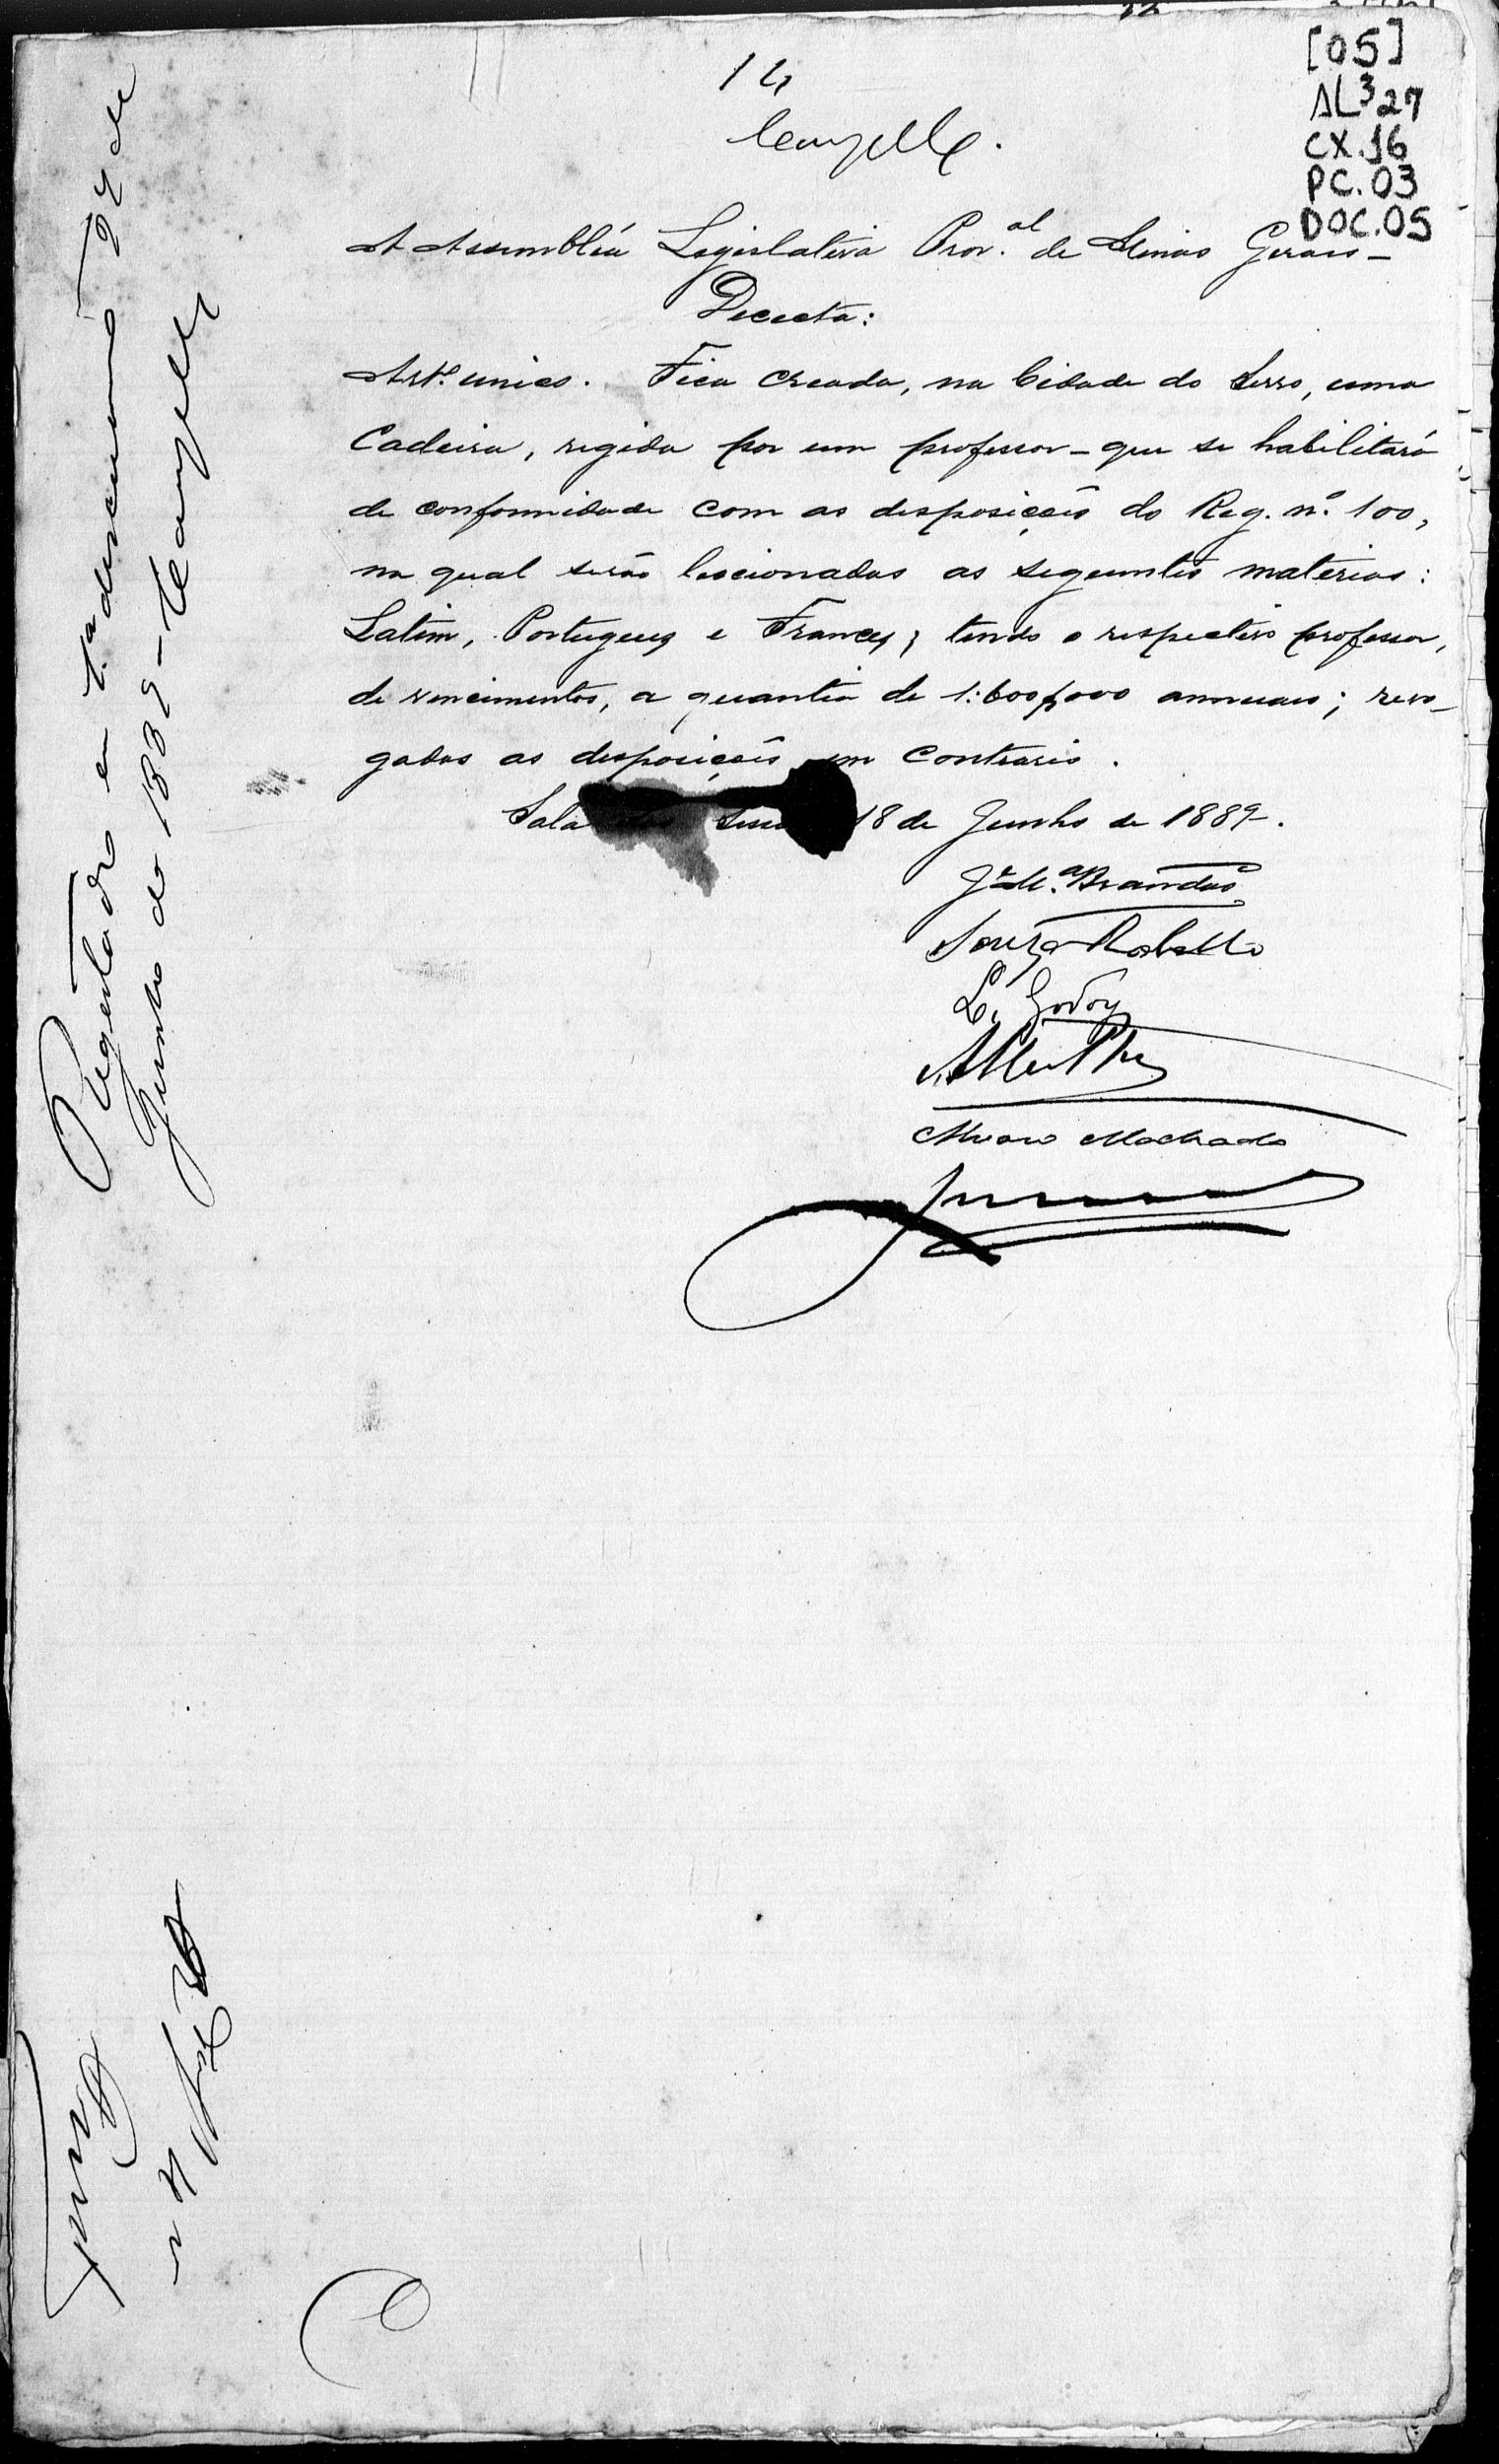 [05]
AL³27
CX.16
PC.03
DOC.05
A Assembléa Legislativa Prov.al de Minas Geraes –
Decreta:
Art.º unico. Fica creada, na Cidade do Serro, uma
Cadeira, regida por um professor – que se habilitará
de conformidade com as disposições do Reg. nº 100,
na qual serão leccionadas as seguintes materias:
Latim, Portuguez e Francez; tendo o respectivo professor,
de vencimentos, a quantia de 1:600$000 annuaes; revo-
gadas as disposições em contrario.
Sala 18 de Junho de 1889.
Brandão
Souza Rabello
L. Godoy
Alvaro Machado
Regeitado em 1.ª discussão de
Junho de 1889 –